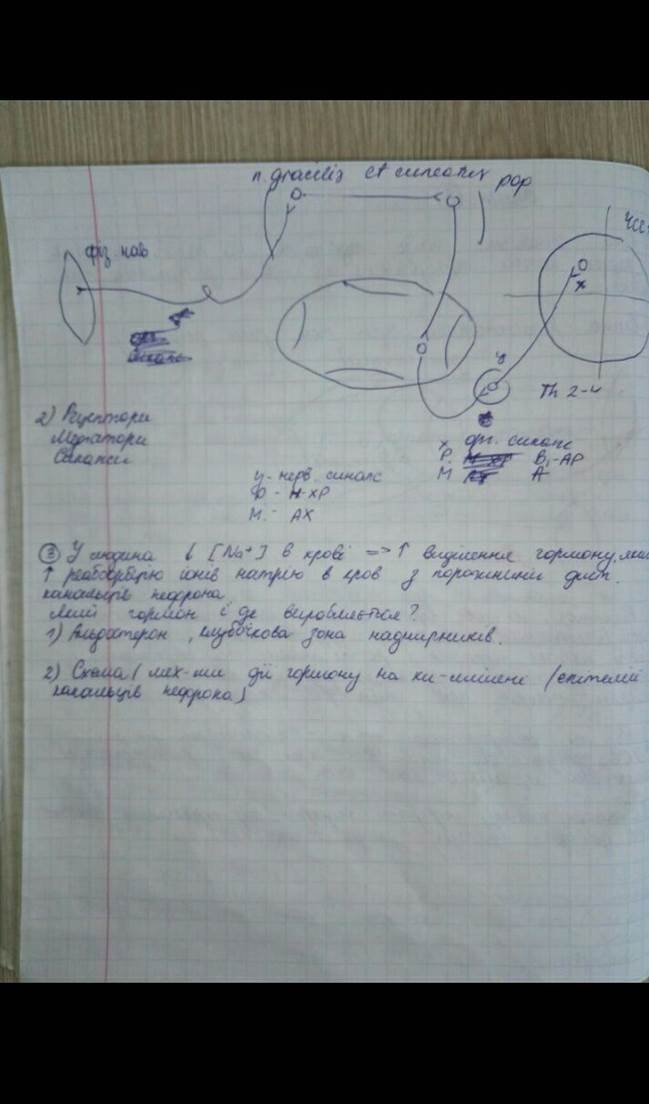 n. gracilis et cuneatus
РФР
ЧСС
фіз нав
у
x
Th 2-4
2) Рецептори
Медіатори
Синапси
x орг. синапс
Р. B₁-АР
М А
у - нерв. синапс
Ф - Н-ХР
М - АХ
③ У людини ↓ [Na⁺] в крові => ↑ виділення гормону, який
↑ реабсорбцію іонів натрію в кров з порожнини дист.
канальців нефрона.
Який гормон і де виробляється?
1) Альдостерон, клубочкова зона наднирників.
2) Схема (мех-ми дії гормону на кл-мішені (епітелій
канальців нефрона)